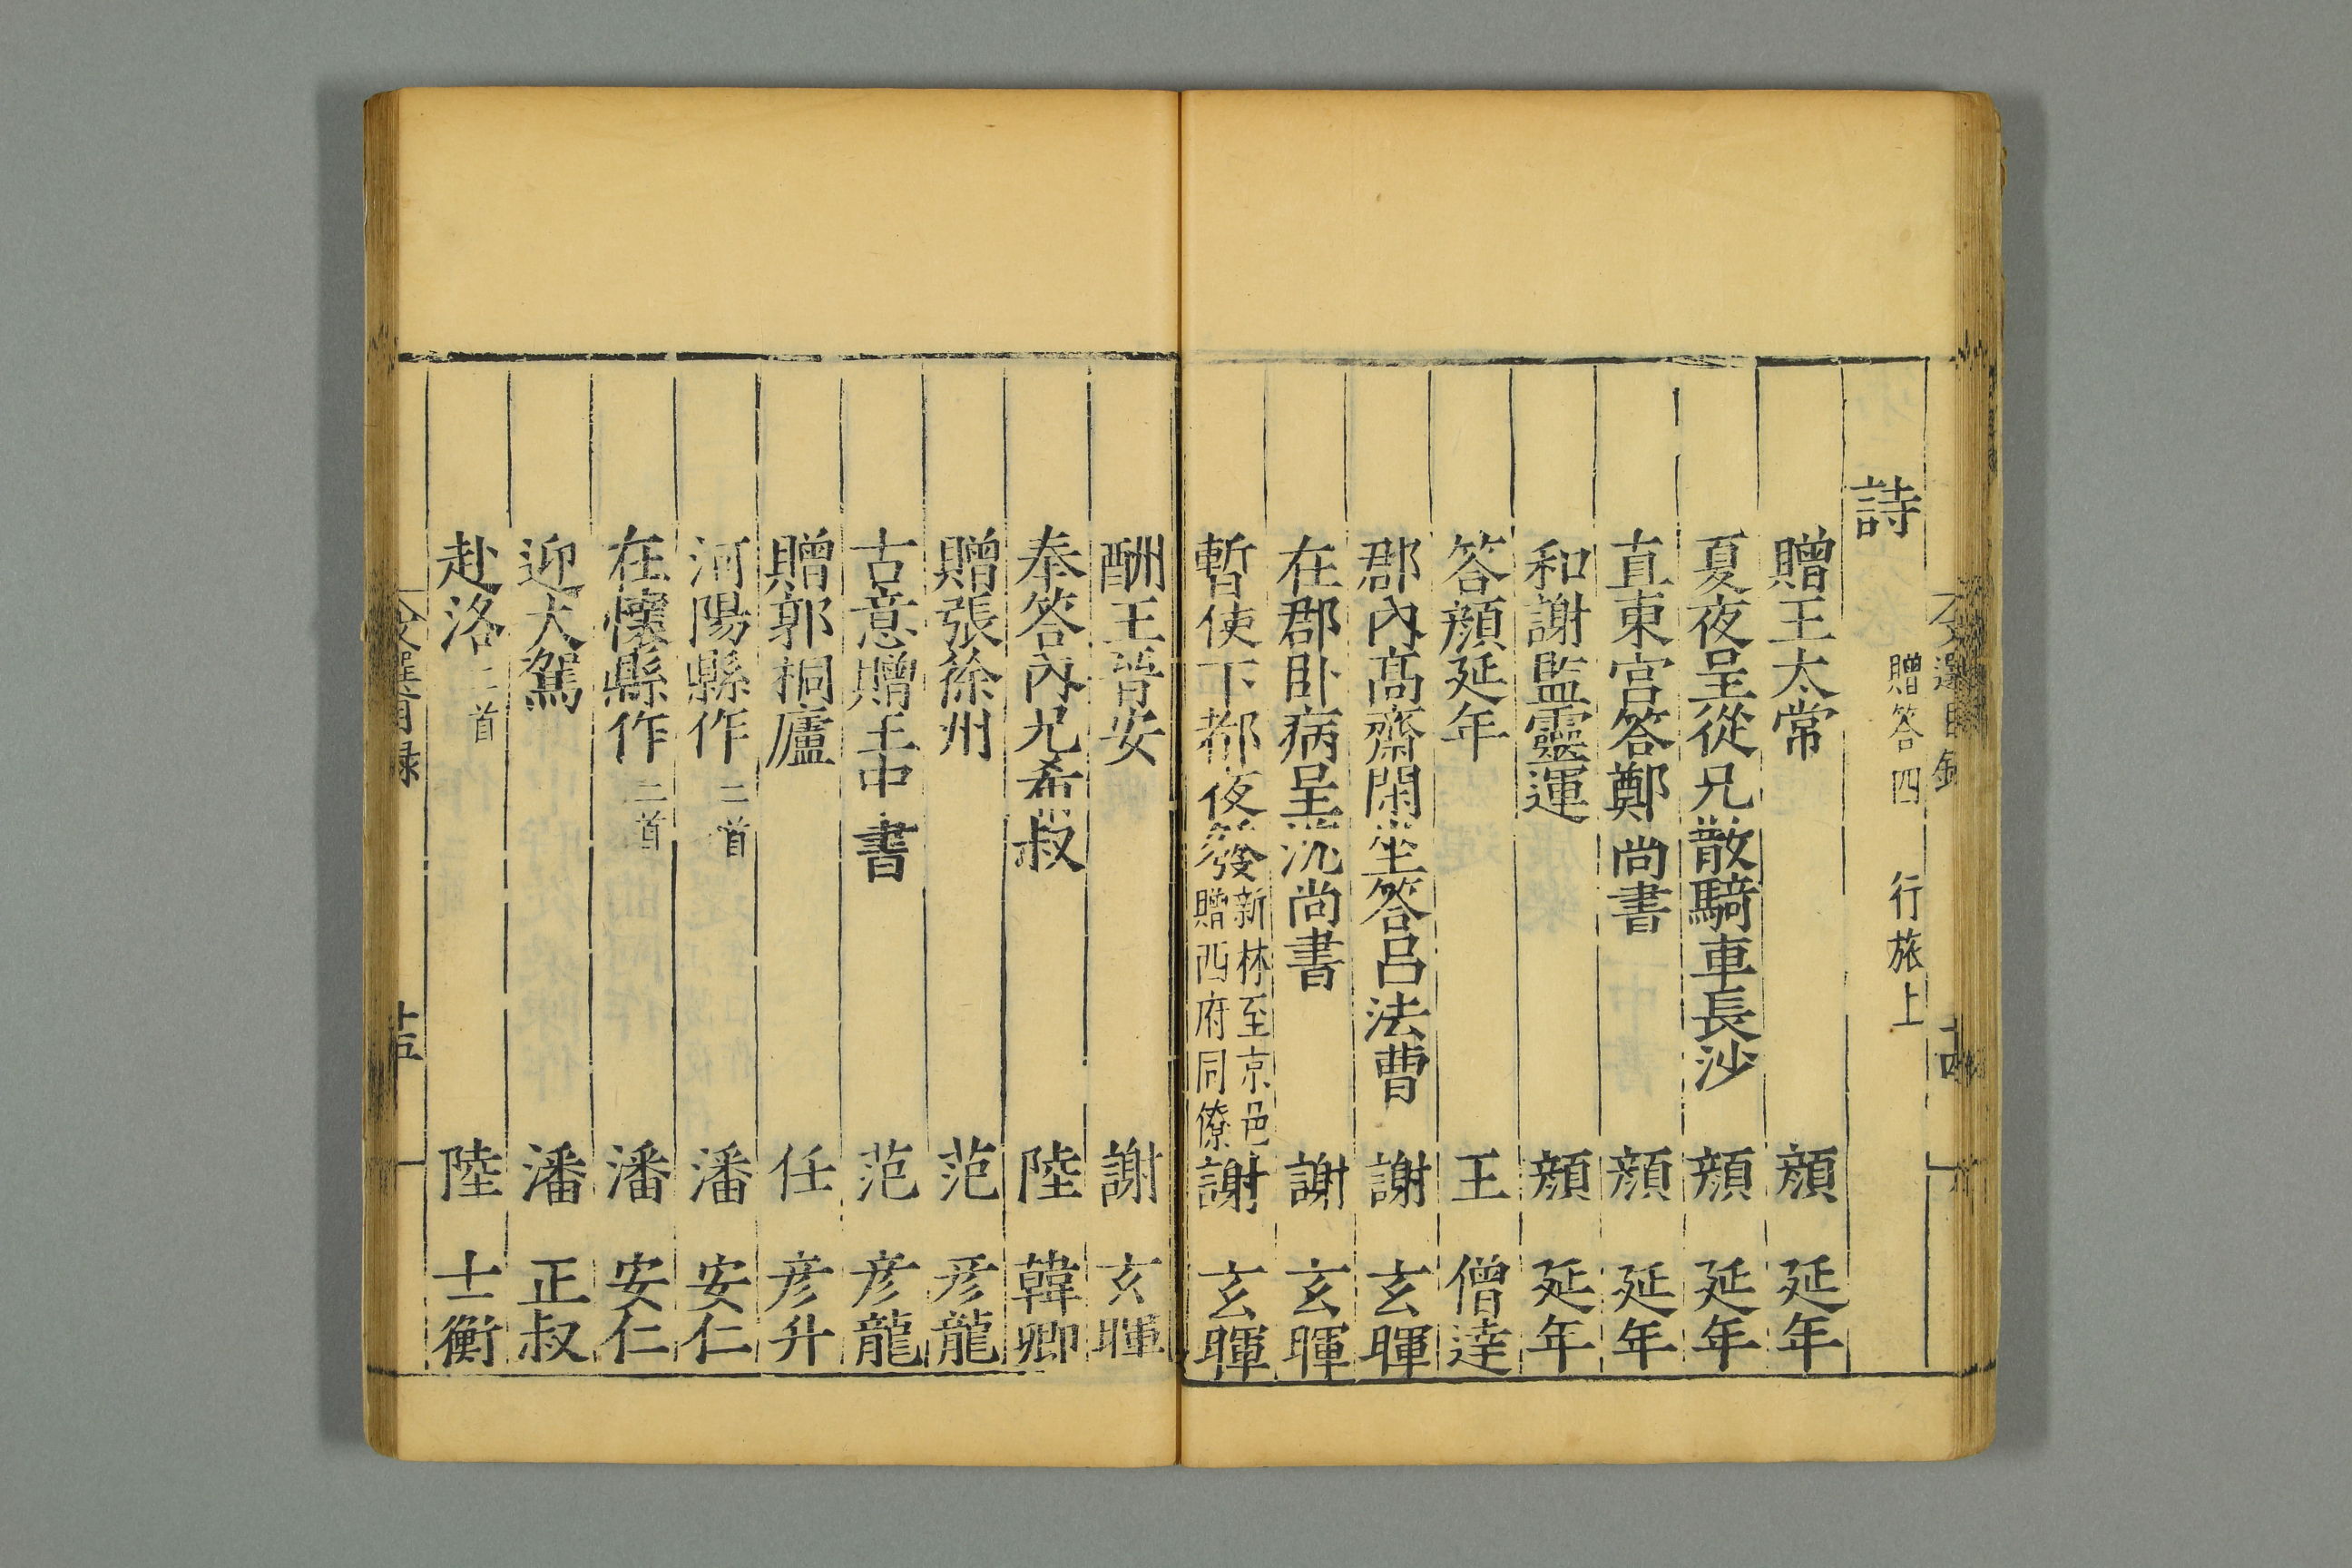 文選目録
詩
贈答四 行旅上
贈王太常 顔 延年
夏夜呈從兄散騎車長沙 顔 延年
直東宮答鄭尚書 顔 延年
和謝監靈運 顔 延年
答顔延年 王 僧達
郡內髙齋閑坐答呂法曹 謝 玄暉
在郡卧病呈沈尚書 謝 玄暉
暫使下都夜發新林至京邑
贈西府同僚 謝 玄暉
酬王晉安 謝 玄暉
奉答內兄希叔 陸 韓卿
贈張徐州 范 彦龍
古意贈王中書 范 彦龍
贈郭桐廬 任 彦升
河陽縣作二首 潘 安仁
在懷縣作二首 潘 安仁
迎大駕 潘 正叔
赴洛二首 陸 士衡
文選目録